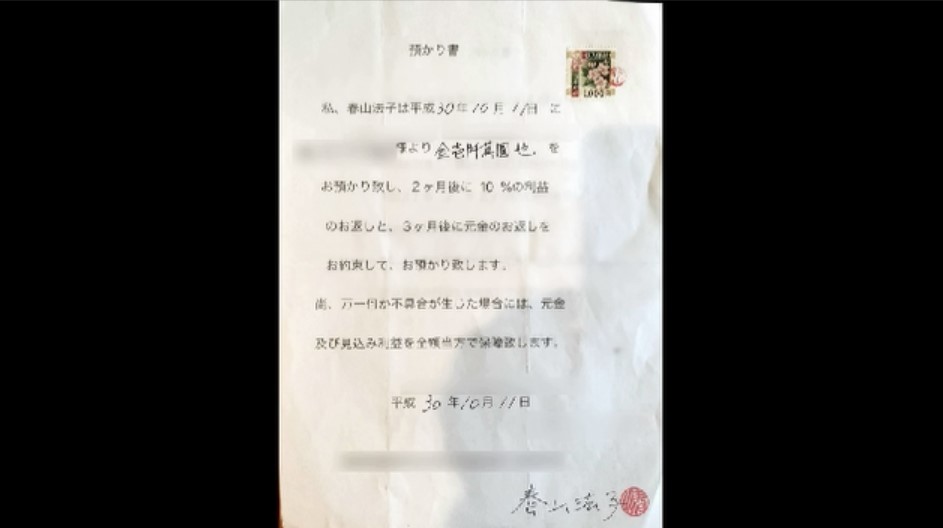 預かり書
1,000
私、春山法子は平成30年10月11日 に
様より 金壱阡萬圓也. を
お預かり致し、2ヶ月後に 10 %の利益
のお返しと、3ヶ月後に元金のお返しを
お約束して、お預かり致します。
尚、万一何か不具合が生じた場合には、元金
及び見込み利益を全額当方で保障致します。
平成 30 年10月 11日
春山法子